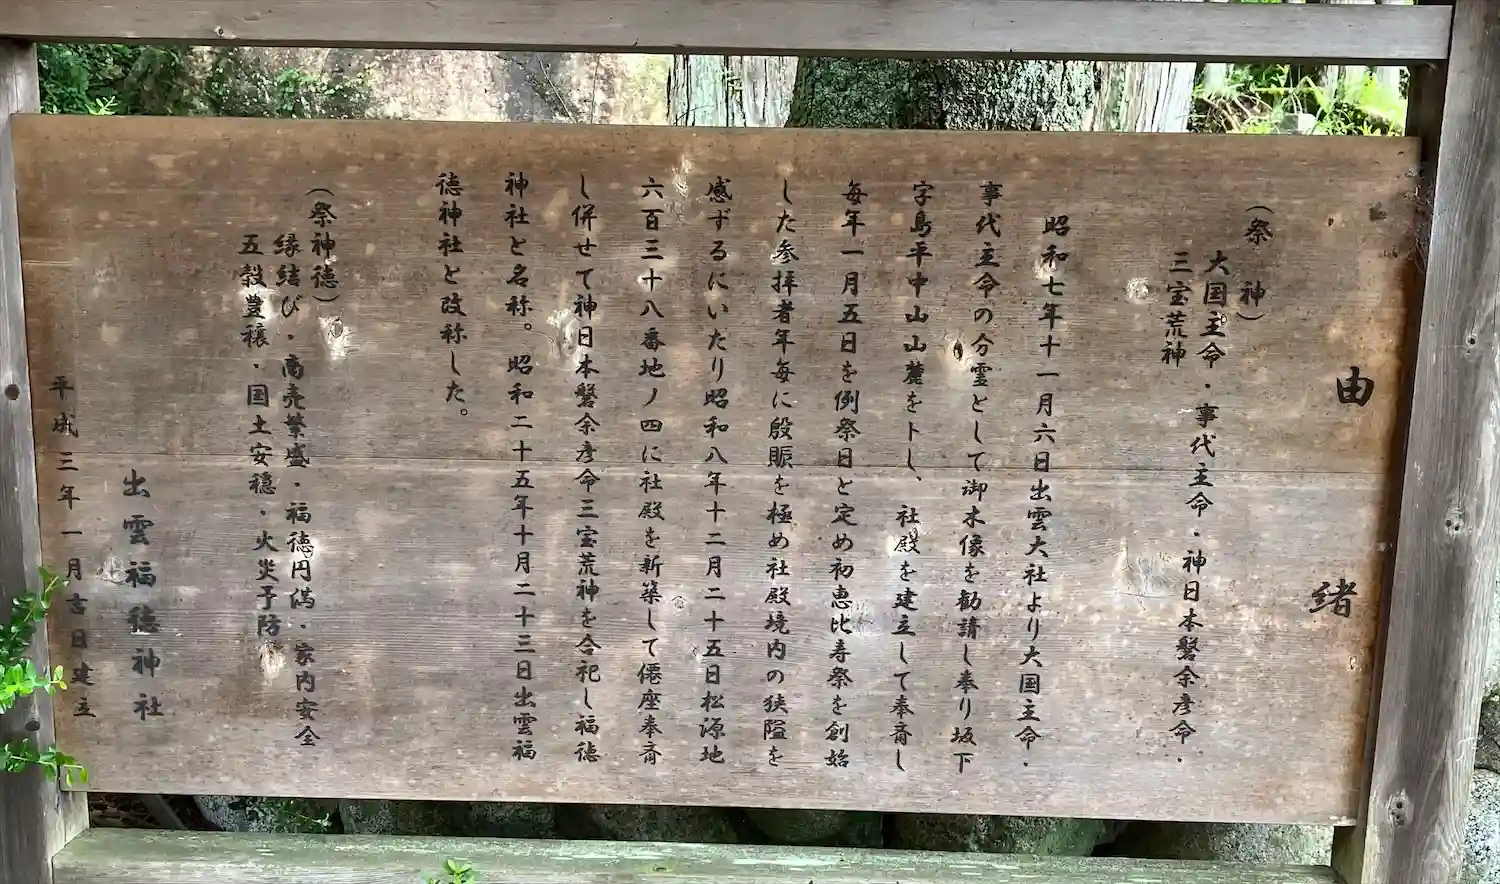 由緒
(祭神)
大国主命・事代主命・神日本磐余彦命・
三宝荒神
昭和七年十一月六日出雲大社より大国主命・
事代主命の分霊として御木像を勧請し奉り坂下
字島平中山山麓を卜し、社殿を建立して奉斎し
毎年一月五日を例祭日と定め初恵比寿祭を創始
した参拝者年毎に殷賑を極め社殿境内の狭隘を
感ずるにいたり昭和八年十二月二十五日松源地
六百三十八番地ノ四に社殿を新築して僊座奉斎
し併せて神日本磐余彦命三宝荒神を合祀し福徳
神社と名称。昭和二十五年十月二十三日出雲福
徳神社と改称した。
(祭神徳)
縁結び・商売繁盛・福徳円満・家内安全
五穀豊穣・国土安穏・火災予防
出雲福徳神社
平成三年一月吉日建立